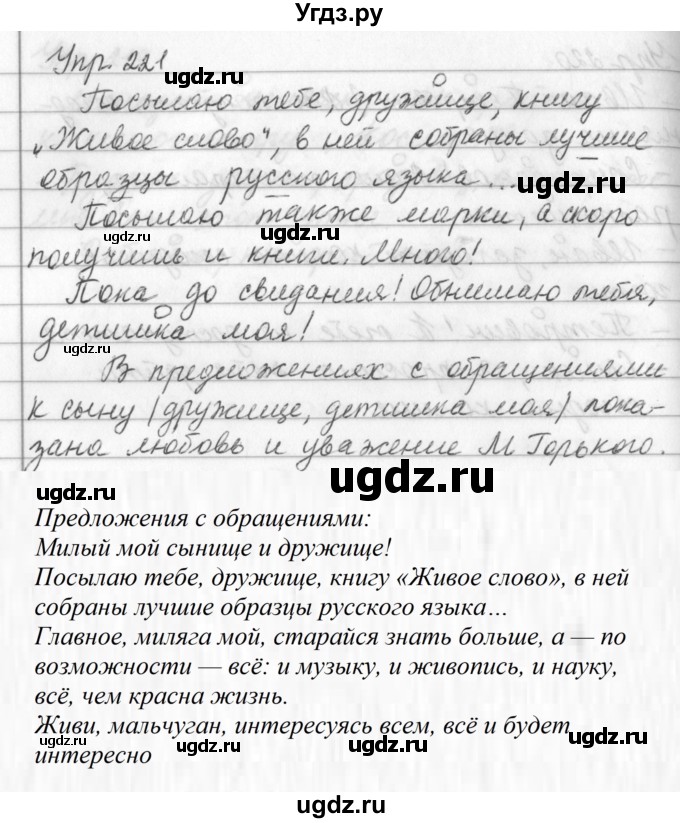 Угдз.ру
Упр. 221
Посылаю тебе, дружище, книгу
„Живое слово“, в ней собраны лучшие
образцы русского языка...
Посылаю также марки, а скоро
получишь и книги. Много!
Пока до свидания! Обнимаю тебя,
детишка моя!
В предложениях с обращениями
к сыну (дружище, детишка моя) пока-
зана любовь и уважение М Горького.
Предложения с обращениями:
Милый мой сынище и дружище!
Посылаю тебе, дружище, книгу «Живое слово», в ней
собраны лучшие образцы русского языка…
Главное, миляга мой, старайся знать больше, а — по
возможности — всё: и музыку, и живопись, и науку,
всё, чем красна жизнь.
Живи, мальчуган, интересуясь всем, всё и будет
интересно
ugdz.ru
ugdz.ru
ugdz.ru
ugdz.ru
ugdz.ru
ugdz.ru
ugdz.ru
ugdz.ru
ugdz.ru
ugdz.ru